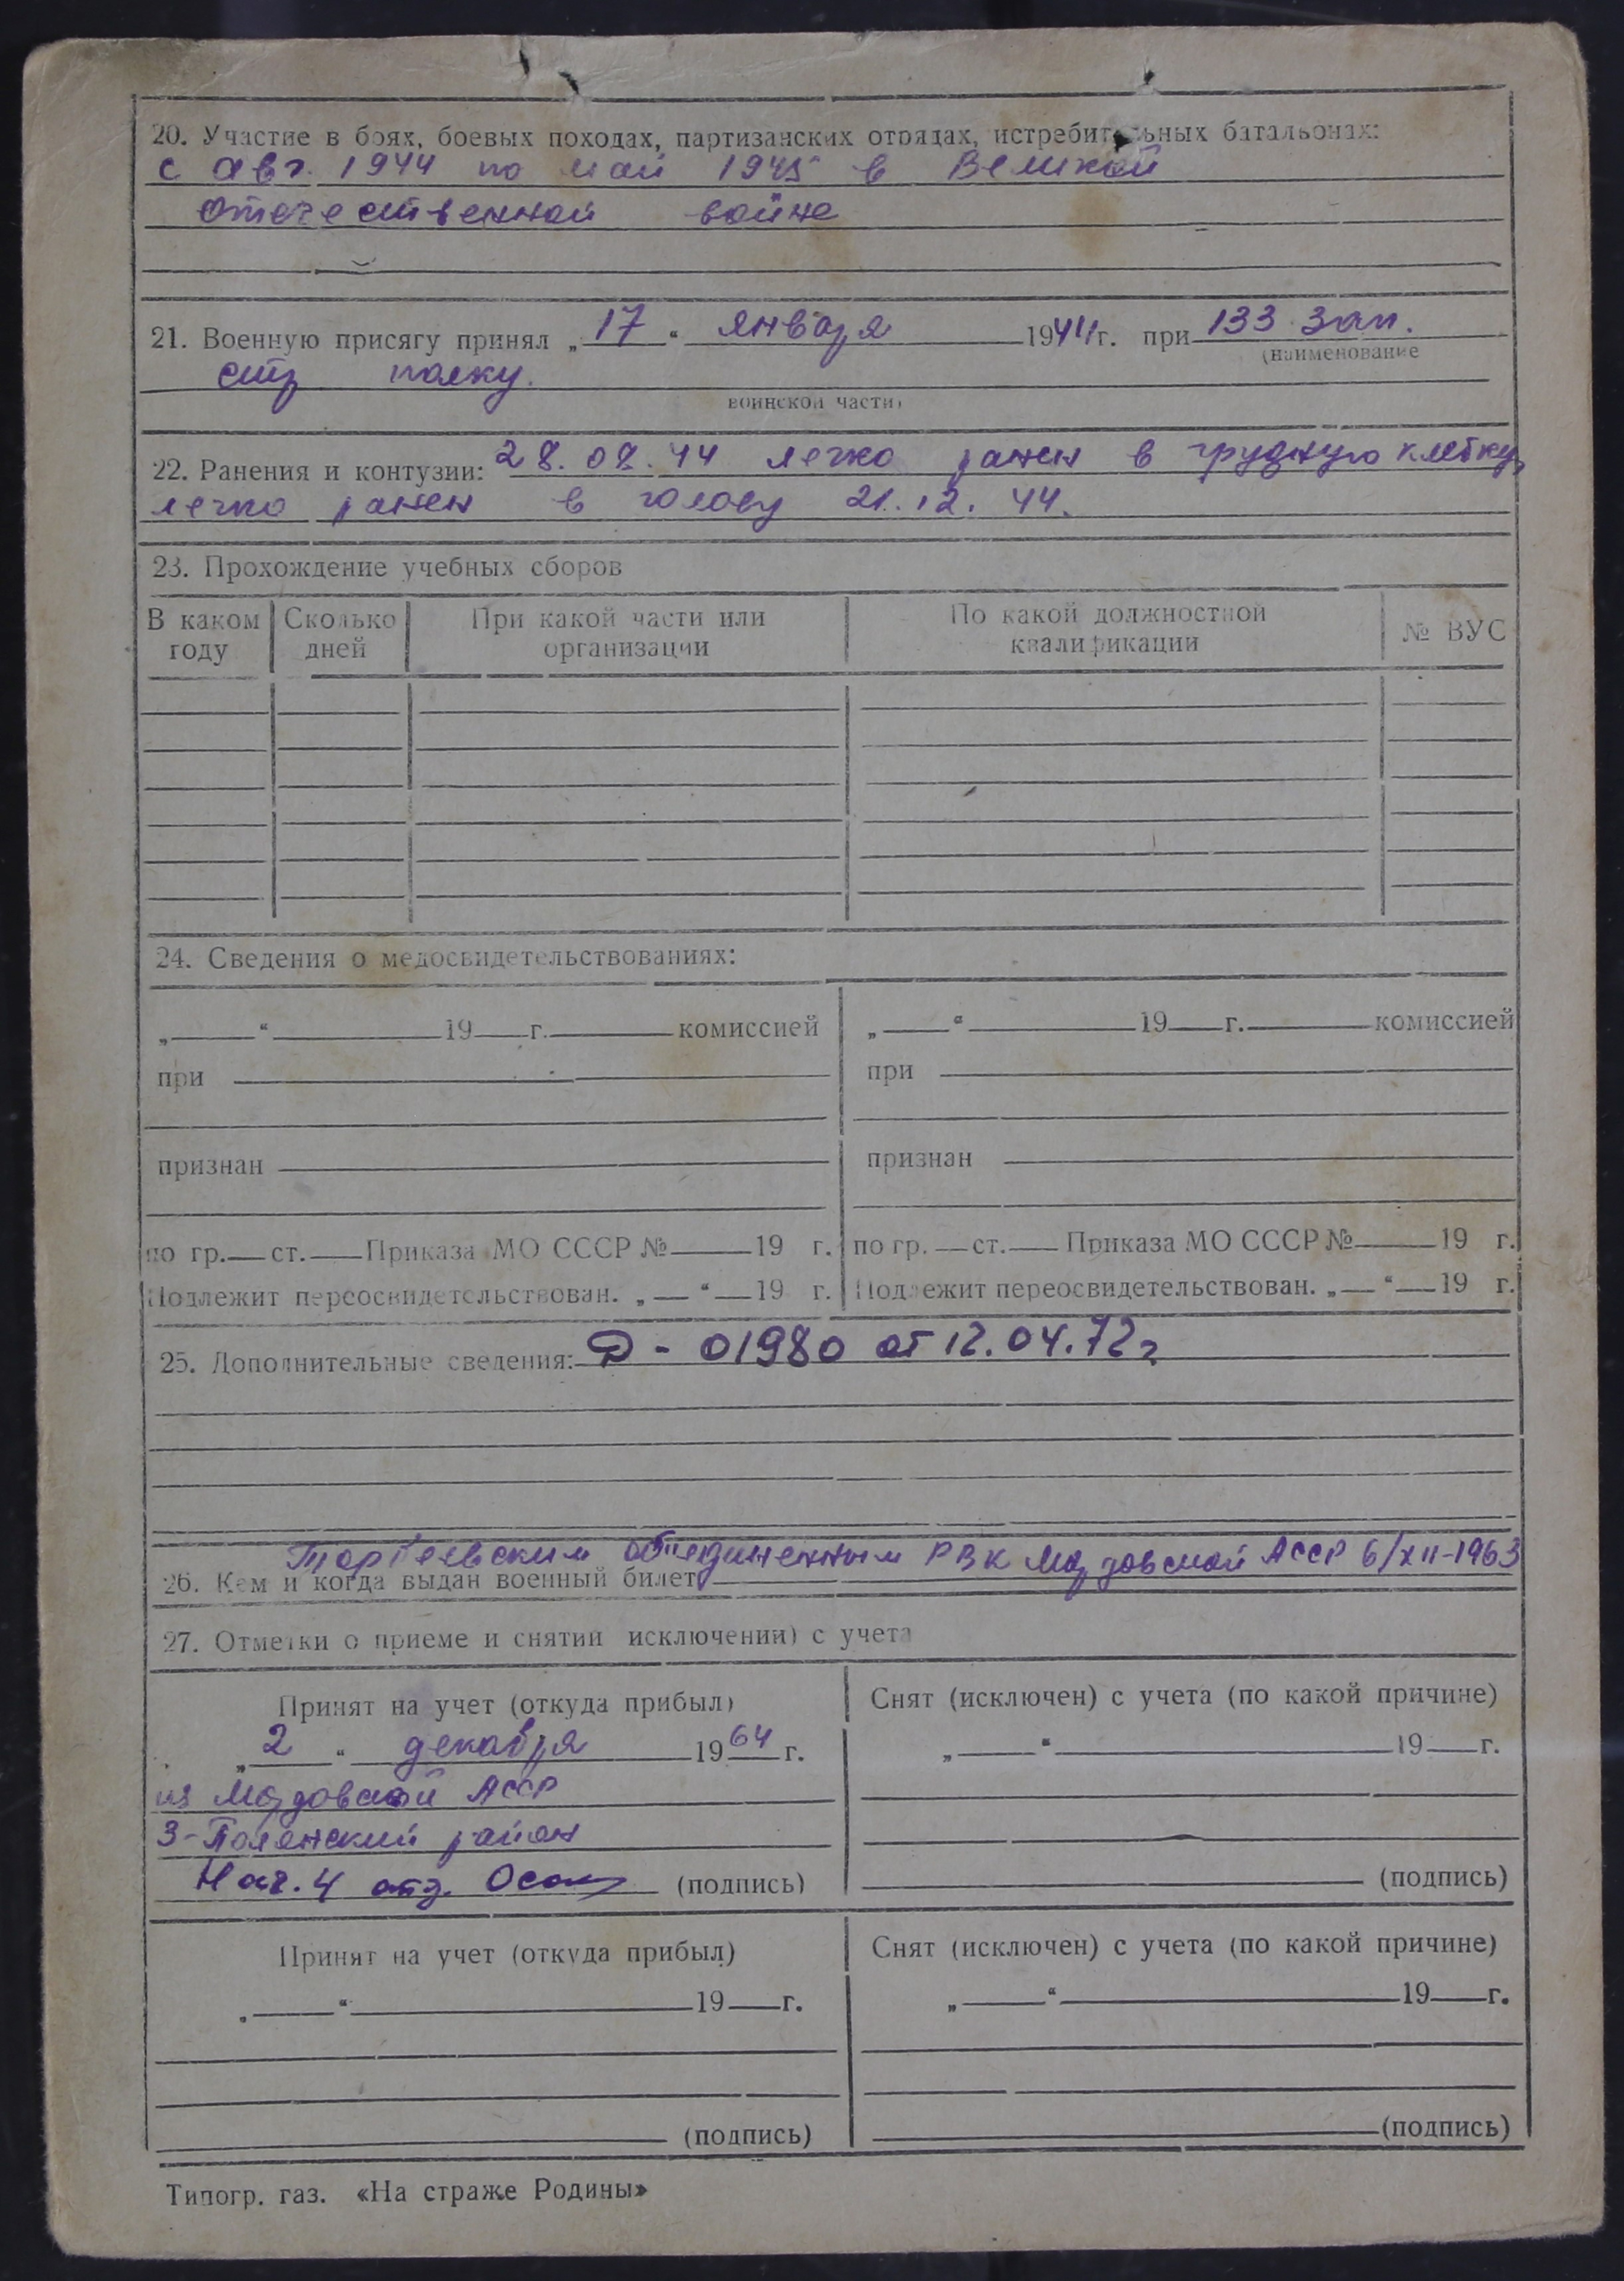 20. Участие в боях, боевых походах, партизанских отрядах, истребительных батальонах:
с авг. 1944 по май 1945 в Великой
Отечественной войне
21. Военную присягу принял „17“ января 1944 г. при 133 зап.
(наименование
стр полку.
воинской части)
22. Ранения и контузии: 28.08.44 легко ранен в грудную клетку,
легко ранен в голову 21.12.44.
23. Прохождение учебных сборов
В каком году Сколько дней При какой части или организации По какой должностной квалификации № ВУС
24. Сведения о медосвидетельствованиях:
„ “ 19 г. комиссией „ “ 19 г. комиссией
при при
признан признан
по гр. ст. Приказа МО СССР № 19 г. по гр. ст. Приказа МО СССР № 19 г.
Подлежит переосвидетельствован. „ “ 19 г. Подлежит переосвидетельствован. „ “ 19 г.
25. Дополнительные сведения: Д - 01980 от 12.04.72г
Торбеевским объединенным РВК Мордовской АССР 6/XII-1963
26. Кем и когда выдан военный билет
27. Отметки о приеме и снятии исключении) с учета
Принят на учет (откуда прибыл) Снят (исключен) с учета (по какой причине)
„2“ декабря 1964 г. „ “ 19 г.
из Мордовской АССР
З-Полянский район
Нач. 4 отд. (подпись) (подпись)
Принят на учет (откуда прибыл) Снят (исключен) с учета (по какой причине)
„ “ 19 г. „ “ 19 г.
(подпись) (подпись)
Типогр. газ. «На страже Родины»